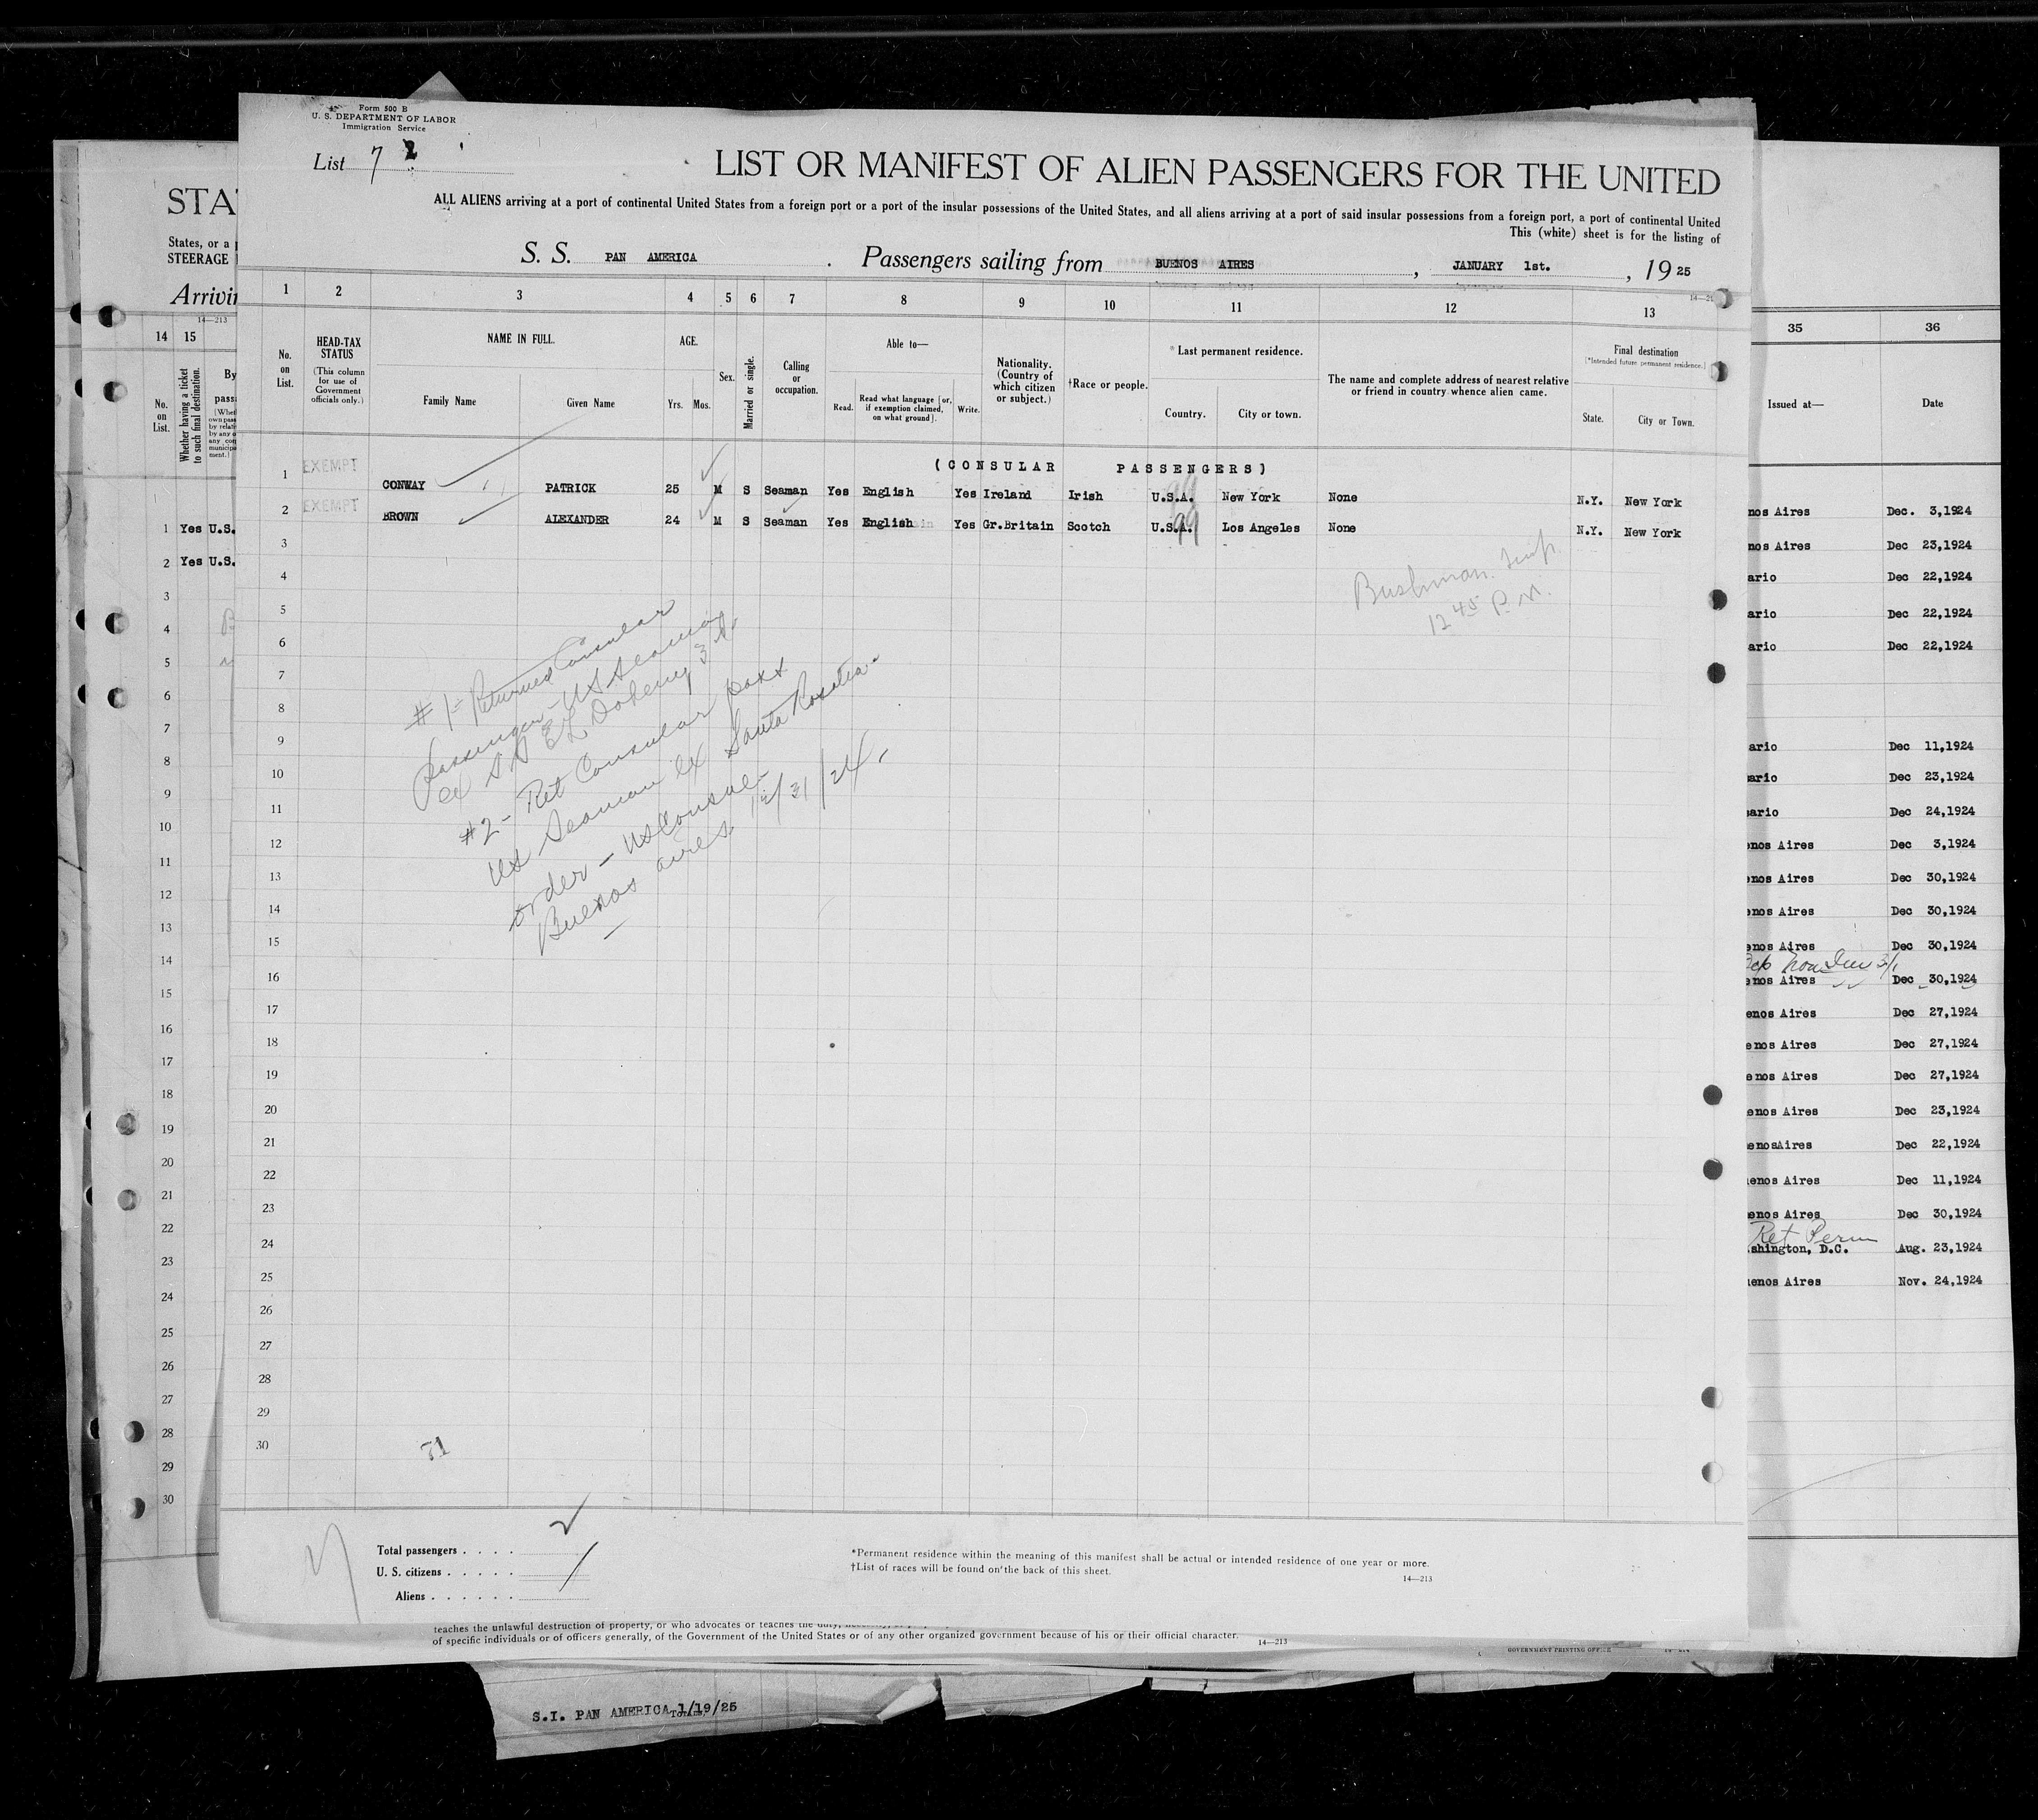 Form 500 B
U. S. DEPARTMENT OF LABOR
Immigration Service
List 7 2
LIST OR MANIFEST OF ALIEN PASSENGERS FOR THE UNITED
ALL ALIENS arriving at a port of continental United States from a foreign port or a port of the insular possessions of the United States, and all aliens arriving at a port of said insular possessions from a foreign port, a port of continental United
This (white) sheet is for the listing of
S. S. PAN AMERICA . Passengers sailing from BUENOS AIRES , JANUARY 1st. , 19 25
1 2 3 4 5 6 7 8 9 10 11 12 13
No. on List.
HEAD-TAX STATUS
(This column for use of Government officials only.)
NAME IN FULL.
Family Name
Given Name
AGE.
Yrs. Mos.
Sex.
Married or single.
Calling or occupation.
Able to—
Read.
Read what language [or, if exemption claimed, on what ground].
Write.
Nationality. (Country of which citizen or subject.)
†Race or people.
*Last permanent residence.
Country.
City or town.
The name and complete address of nearest relative or friend in country whence alien came.
Final destination
[*Intended future permanent residence.]
State.
City or Town.
(CONSULAR PASSENGERS)
1 EXEMPT CONWAY PATRICK 25 M S Seaman Yes English Yes Ireland Irish U.S.A. New York None N.Y. New York
2 EXEMPT BROWN ALEXANDER 24 M S Seaman Yes English Yes Gr.Britain Scotch U.S.A. Los Angeles None N.Y. New York
3
4
5
6
7
8
9
10
11
12
13
14
15
16
17
18
19
20
21
22
23
24
25
26
27
28
29
30
Bushman. Insp.
12 45 P.M.
#1- Returned Consular
passenger - US Seaman
ex SS EL Doheny 3rd
#2- Ret Consular pass
US Seaman ex Santa Rosalia
order - US Consul -
Buenos Aires 12/31/24
71
Total passengers . . . .
U. S. citizens . . . . .
Aliens . . . . . .
*Permanent residence within the meaning of this manifest shall be actual or intended residence of one year or more.
†List of races will be found on the back of this sheet.
14—213
STA
States, or a
STEERAGE
Arrivin
14—213
14 15
No. on List.
Whether having a ticket to such final destination.
By
1 Yes U.S.
2 Yes U.S.
3
4
5
6
7
8
9
10
11
12
13
14
15
16
17
18
19
20
21
22
23
24
25
26
27
28
29
30
35 36
Issued at— Date
nos Aires Dec. 3,1924
nos Aires Dec 23,1924
ario Dec 22,1924
ario Dec 22,1924
ario Dec 22,1924
ario Dec 11,1924
ario Dec 23,1924
sario Dec 24,1924
enos Aires Dec 3,1924
enos Aires Dec 30,1924
enos Aires Dec 30,1924
enos Aires Dec 30,1924
enos Aires Dec 30,1924
enos Aires Dec 27,1924
enos Aires Dec 27,1924
enos Aires Dec 27,1924
enos Aires Dec 23,1924
enosAires Dec 22,1924
enos Aires Dec 11,1924
enos Aires Dec 30,1924
Ret Perm
shington, D.C. Aug. 23,1924
enos Aires Nov. 24,1924
teaches the unlawful destruction of property, or who advocates or teaches the duty,
of specific individuals or of officers generally, of the Government of the United States or of any other organized government because of his or their official character.
14—213
GOVERNMENT PRINTING OFFICE
S.I. PAN AMERICA 1/19/25